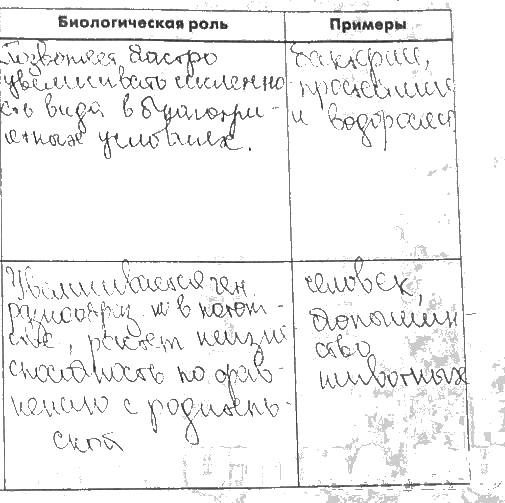 Биологическая роль
Примеры
Позволяет быстро
увеличивать численно
сть вида в благопри-
ятных условиях.
бактерии,
простейшие
и водоросли
Увеличивается ген.
разнообраз. в потом-
стве, растет жизне
способность по срав-
нению с родитель-
ской
человек,
большин-
ство
животных